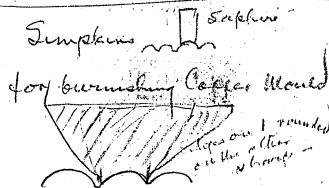 Simpkins
Saphire
for burnishing Copper Mould
edges on 1 rounded
on the other
sharp